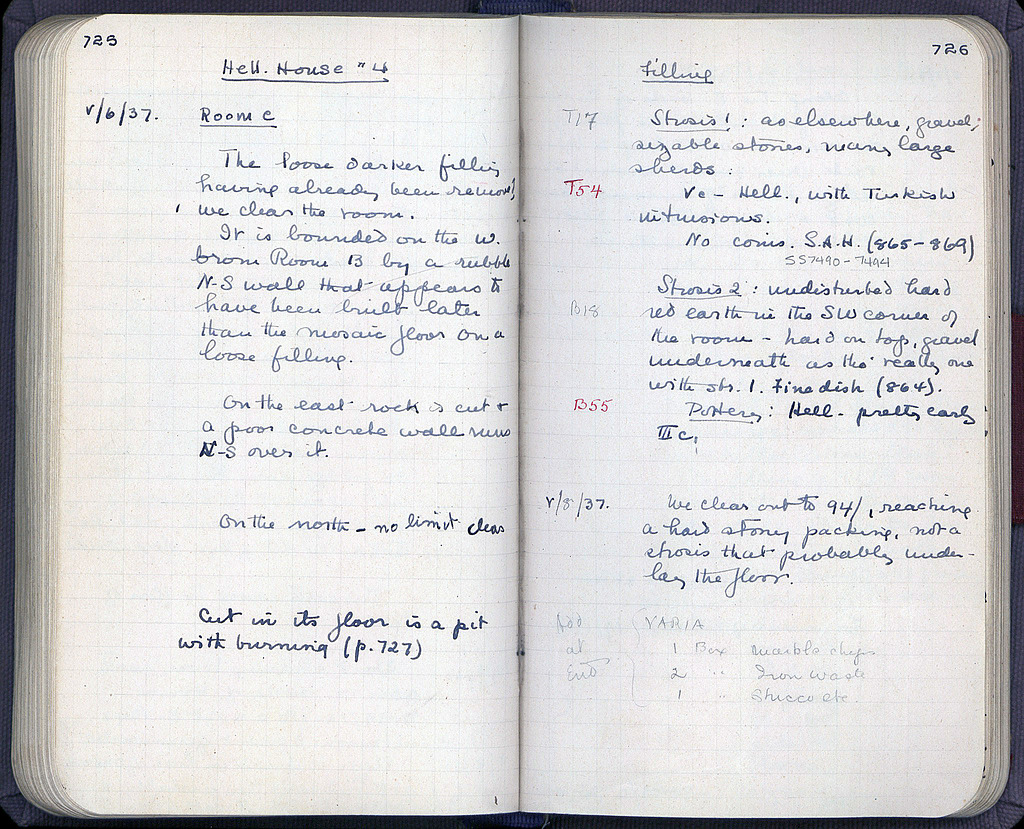 725
Hell. House #4
V/6/37. Room C
The loose darker filling
having already been removed,
we clear the room.
It is bounded on the W.
from Room B by a rubble
N-S wall that appears to
have been built later
than the mosaic floor on a
loose filling.
On the east rock is cut &
a poor concrete wall runs
N-S over it.
On the north - no limit clear
Cut in its floor is a pit
with burning (p.727)
726
Filling
T17 Strosis 1 : as elsewhere, gravel,
sizable stones, many large
sherds :
T54 Ve - Hell., with Turkish
intrusions.
No coins. S.A.H. (865-869)
SS7490-7494
Strosis 2 : undisturbed hard
B18 red earth in the SW corner of
the room - hard on top, gravel
underneath as tho' really one
with str. 1. Fine dish (864).
B55 Pottery : Hell - pretty early
III c.
V/8/37. We clear out to 94/, reaching
a hard stony packing, not a
strosis that probably under-
lay the floor.
Add VARIA
at 1 Box marble chips
End 2 " Iron waste
1 " Stucco etc.